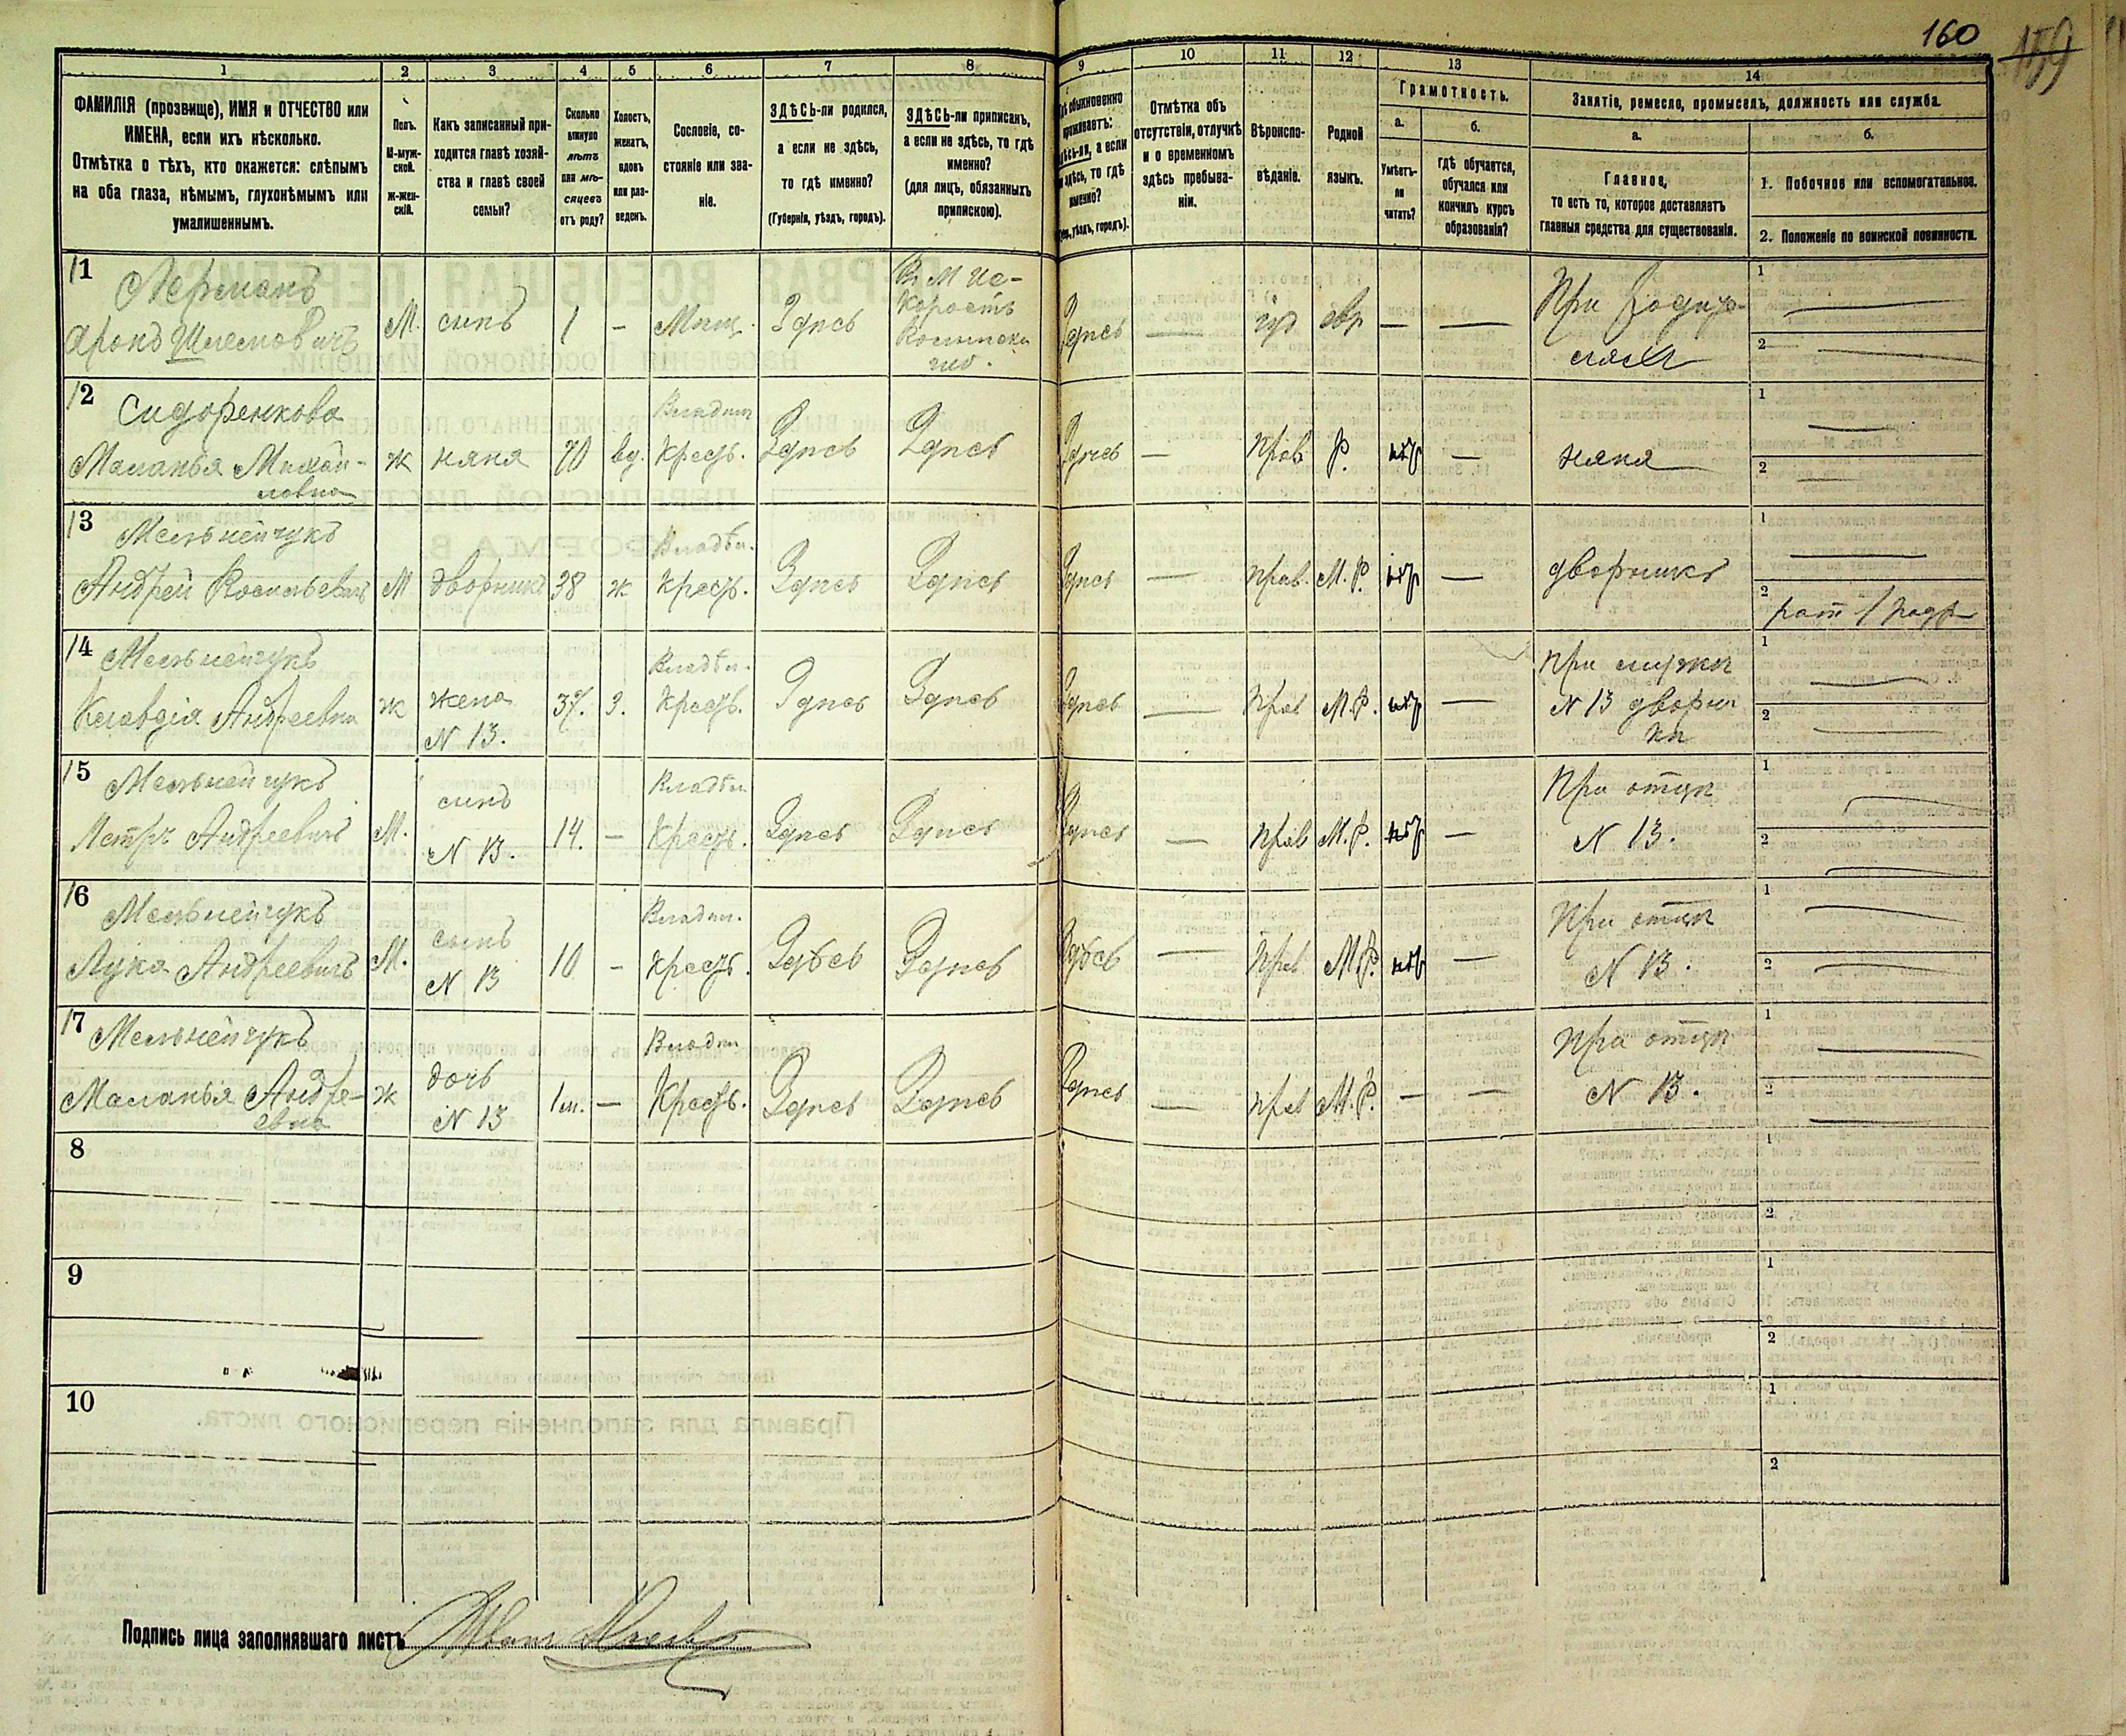 160
159
1
2
3
4
5
6
7
8
8
9
10
11
12
13
14
ФАМИЛІЯ (прозвище), ИМЯ и ОТЧЕСТВО или
ИМЕНА, если ихъ нѣсколько.
Отмѣтка о тѣхъ, кто окажется: слѣпымъ
на оба глаза, нѣмымъ, глухонѣмымъ или
умалишеннымъ.
Полъ.
М-муж-
ской.
ж-жен-
скій.
Какъ записанный при-
ходится главѣ хозяй-
ства и главѣ своей
семьи?
Сколько
минуло
лѣтъ
или мѣ-
сяцевъ
отъ роду?
Холостъ,
женатъ,
вдовъ
или раз-
веденъ.
Сословіе, со-
стояніе или зва-
ніе.
ЗДѢСЬ-ли родился,
а если не здѣсь,
то гдѣ именно?
(Губернія, уѣздъ, городъ).
ЗДѢСЬ-ли приписанъ,
а если не здѣсь, то гдѣ
именно?
(для лицъ, обязанныхъ
припискою).
обыкновенно
проживаетъ:
здѣсь-ли, а если
не здѣсь, то гдѣ
именно?
уѣздъ, городъ).
Отмѣтка объ
отсутствіи, отлучкѣ
и о временномъ
здѣсь пребыва-
ніи.
Вѣроиспо-
вѣданіе.
Родной
языкъ.
Грамотность.
а.
Умѣетъ-
ли
читать?
б.
гдѣ обучается,
обучался или
кончилъ курсъ
образованія?
Занятіе, ремесло, промыселъ, должность или служба.
а.
Главное,
то есть то, которое доставляетъ
главныя средства для существованія.
б.
1. Побочное или вспомогательное.
2. Положеніе по воинской повинности.
11
Лерманъ
Аронъ Шлемовичъ
М.
сынъ
1
–
Мѣщ.
Здѣсь
Въ М Ис-
коростъ
Волынск
губ.
Здѣсь
—
іуд
евр
—
—
При родите-
ляхъ
1
—
2
—
12
Сидоренкова
Маланья Михай-
ловна
ж
няня
70
вд.
Владѣл
Крест.
Здѣсь
Здѣсь
Здѣсь
—
Прав
Р.
нѣт
—
няня
1
—
2
—
13
Мельнейчукъ
Андрей Васильевичъ
М
дворникъ
38
ж
Владѣл.
Крест.
Здѣсь
Здѣсь
Здѣсь
—
Прав.
М.Р.
нѣт
—
дворникъ
1
—
2
рат 1 разр
14
Мельнейчукъ
Клавдія Андреевна
ж
жена
N 13.
37.
З.
Владѣл.
Крест.
Здѣсь
Здѣсь
Здѣсь
—
Прав
М.Р.
нѣт
—
При мужѣ
N 13 дворни
кѣ
1
—
2
—
15
Мельнейчукъ
Петръ Андреевичъ
М.
сынъ
N 13.
14.
–
Владѣл
Крест.
Здѣсь
Здѣсь
Здѣсь
—
Прав
М.Р.
нѣт
—
При отцѣ
N 13.
1
—
2
—
16
Мельнейчукъ
Лука Андреевичъ
М.
сынъ
N 13
10
–
Владѣл.
Крест.
Здѣсь
Здѣсь
Здѣсь
—
Прав
М.Р.
нѣт
—
При отцѣ
N 13.
1
—
2
—
17
Мельнейчукъ
Маланья Андре-
евна
ж
дочь
N 13
1 м.
—
Владѣл
Крест.
Здѣсь
Здѣсь
Здѣсь
—
Прав
М.Р.
—
—
При отцѣ
N 13.
1
—
2
—
8
1
2
9
1
2
10
1
2
Подпись лица заполнявшаго листъ
Иванъ